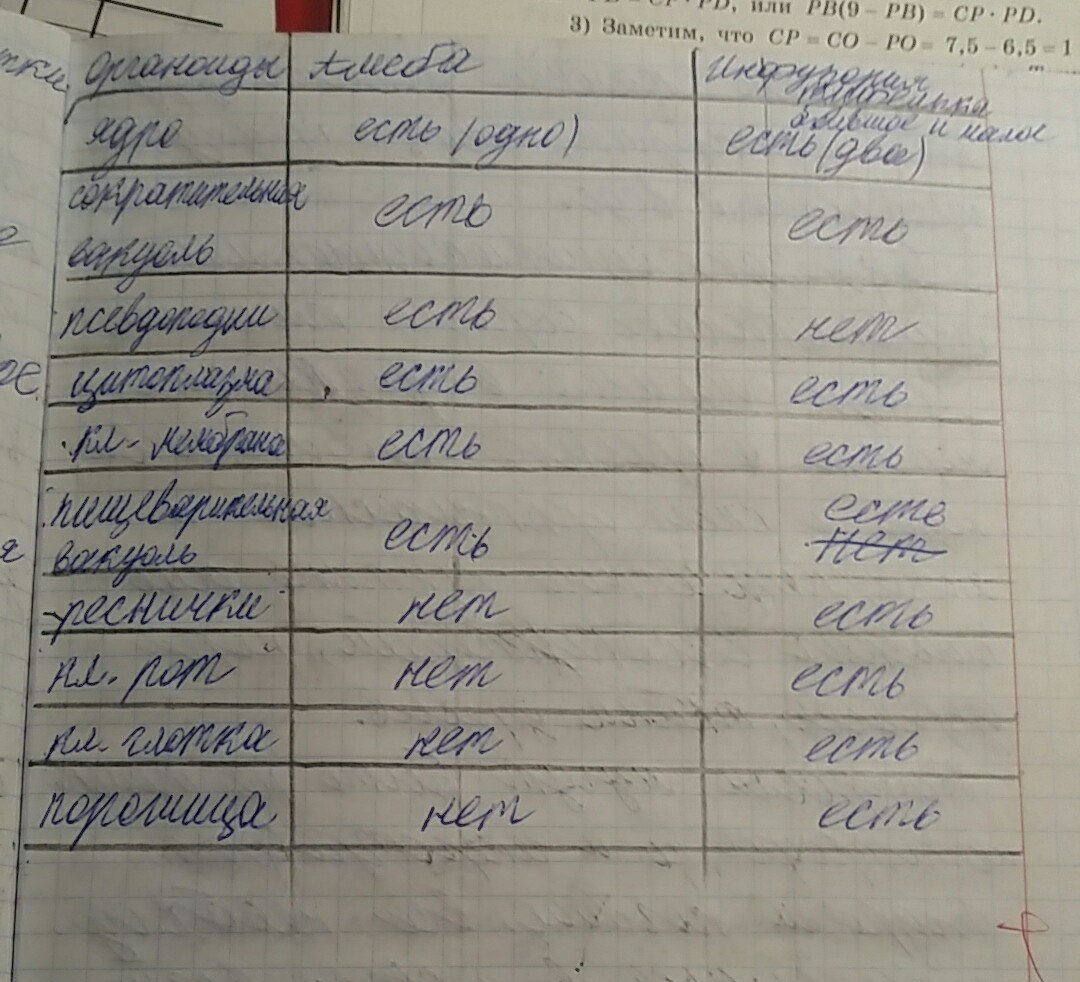 или PB(9 − PB) = CP · PD.
3) Заметим, что CP = CO − PO = 7,5 − 6,5 = 1
Органоиды Амеба Инфузория
туфелька
большое и малое
ядро есть (одно) есть (два)
сократительная
вакуоль есть есть
псевдоподии есть нет
цитоплазма есть есть
кл. мембрана есть есть
пищеварительная есть
вакуоль есть нет
реснички нет есть
кл. рот нет есть
кл. глотка нет есть
порошица нет есть